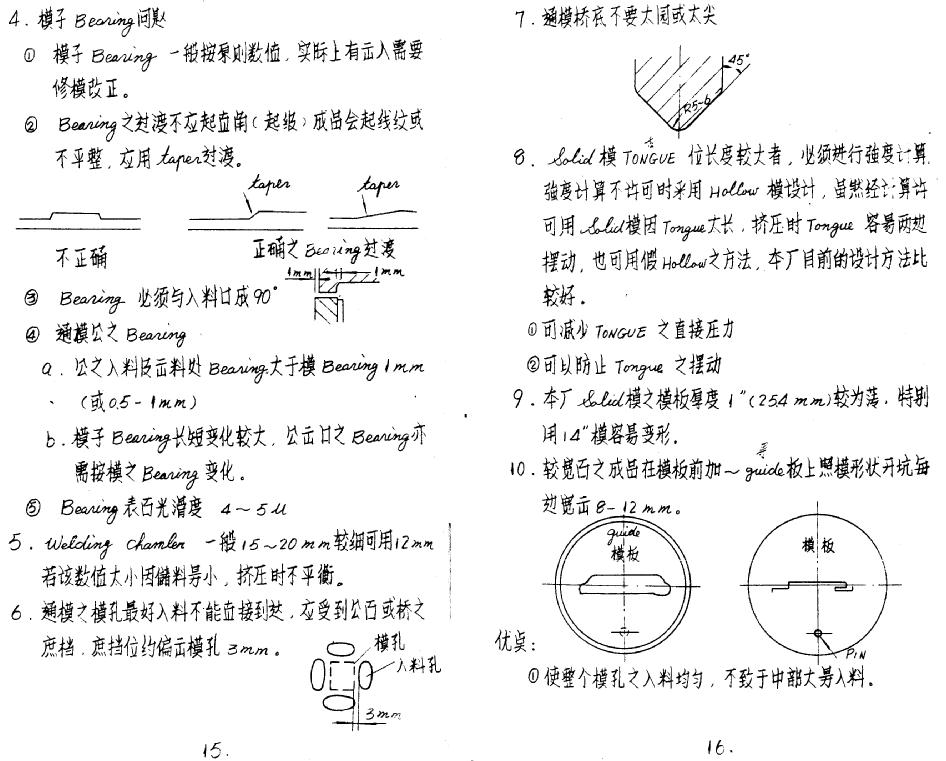 4. 模子 Bearing问题
① 模子 Bearing 一般按原则数值，实际上有出入需要
修模改正。
② Bearing之过渡不应起直角（起级）成品会起线纹或
不平整，应用 taper过渡。
taper
taper
不正确
正确之 Bearing过渡
1mm
1mm
③ Bearing 必须与入料口成90°
④ 通模公之 Bearing
a. 公之入料及出料处 Bearing大于模 Bearing 1mm
（或0.5-1mm）
b. 模子 Bearing长短变化较大，公出口之 Bearing亦
需按模之 Bearing 变化。
⑤ Bearing 表面光滑度 4～5u
5. Welding chamber 一般15～20mm较细可用12mm
若该数值太小因储料易小，挤压时不平衡。
6. 通模之模孔最好入料不能直接到达，应受到公面或桥之
庶挡，庶挡位约偏出模孔3mm。
模孔
入料孔
3mm
15.
7. 通模桥底不要太园或太尖
45°
R5-6
舌
8. Solid 模 TONGUE 位长度较大者，必须进行強度计算，
強度计算不许可时采用 Hollow 模设计，虽然经计算许
可用 Solid模因 Tongue太长，挤压时 Tongue 容易两边
摆动，也可用假 Hollow之方法，本厂目前的设计方法比
较好。
①可减少 TONGUE 之直接压力
②可以防止 Tongue 之摆动
9. 本厂 Solid模之模板厚度 1"(25.4mm)较为薄，特别
用14"模容易变形。
10. 较宽面之成品在模板前加～guide板上照模形状开坑每
边宽出 8-12mm。
guide
模板
模板
PIN
优点：
①使整个模孔之入料均匀，不致于中部太易入料。
16.